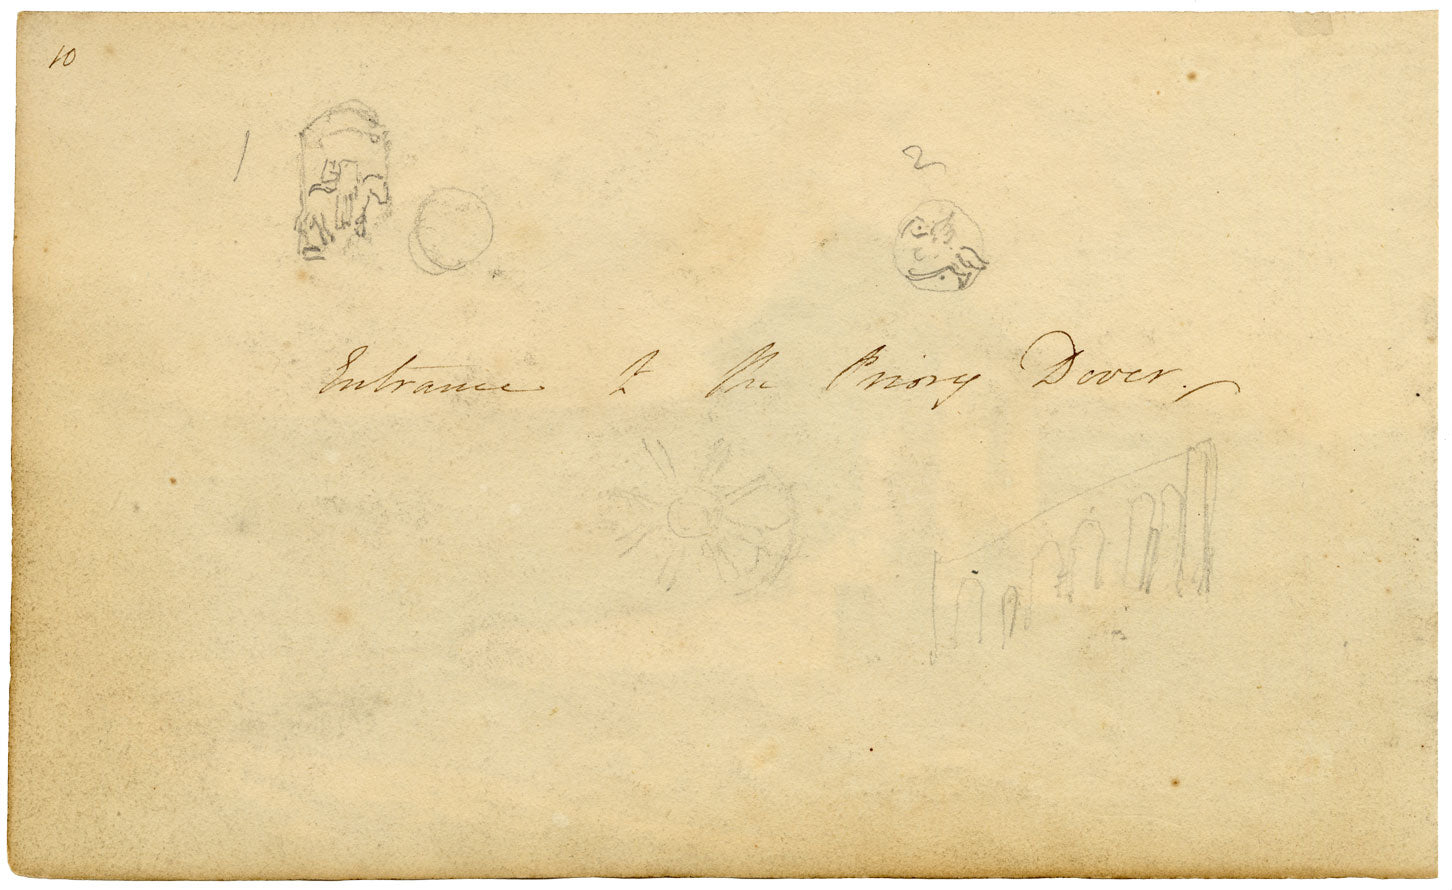 10
1
2
Entrance to the Priory Dover.